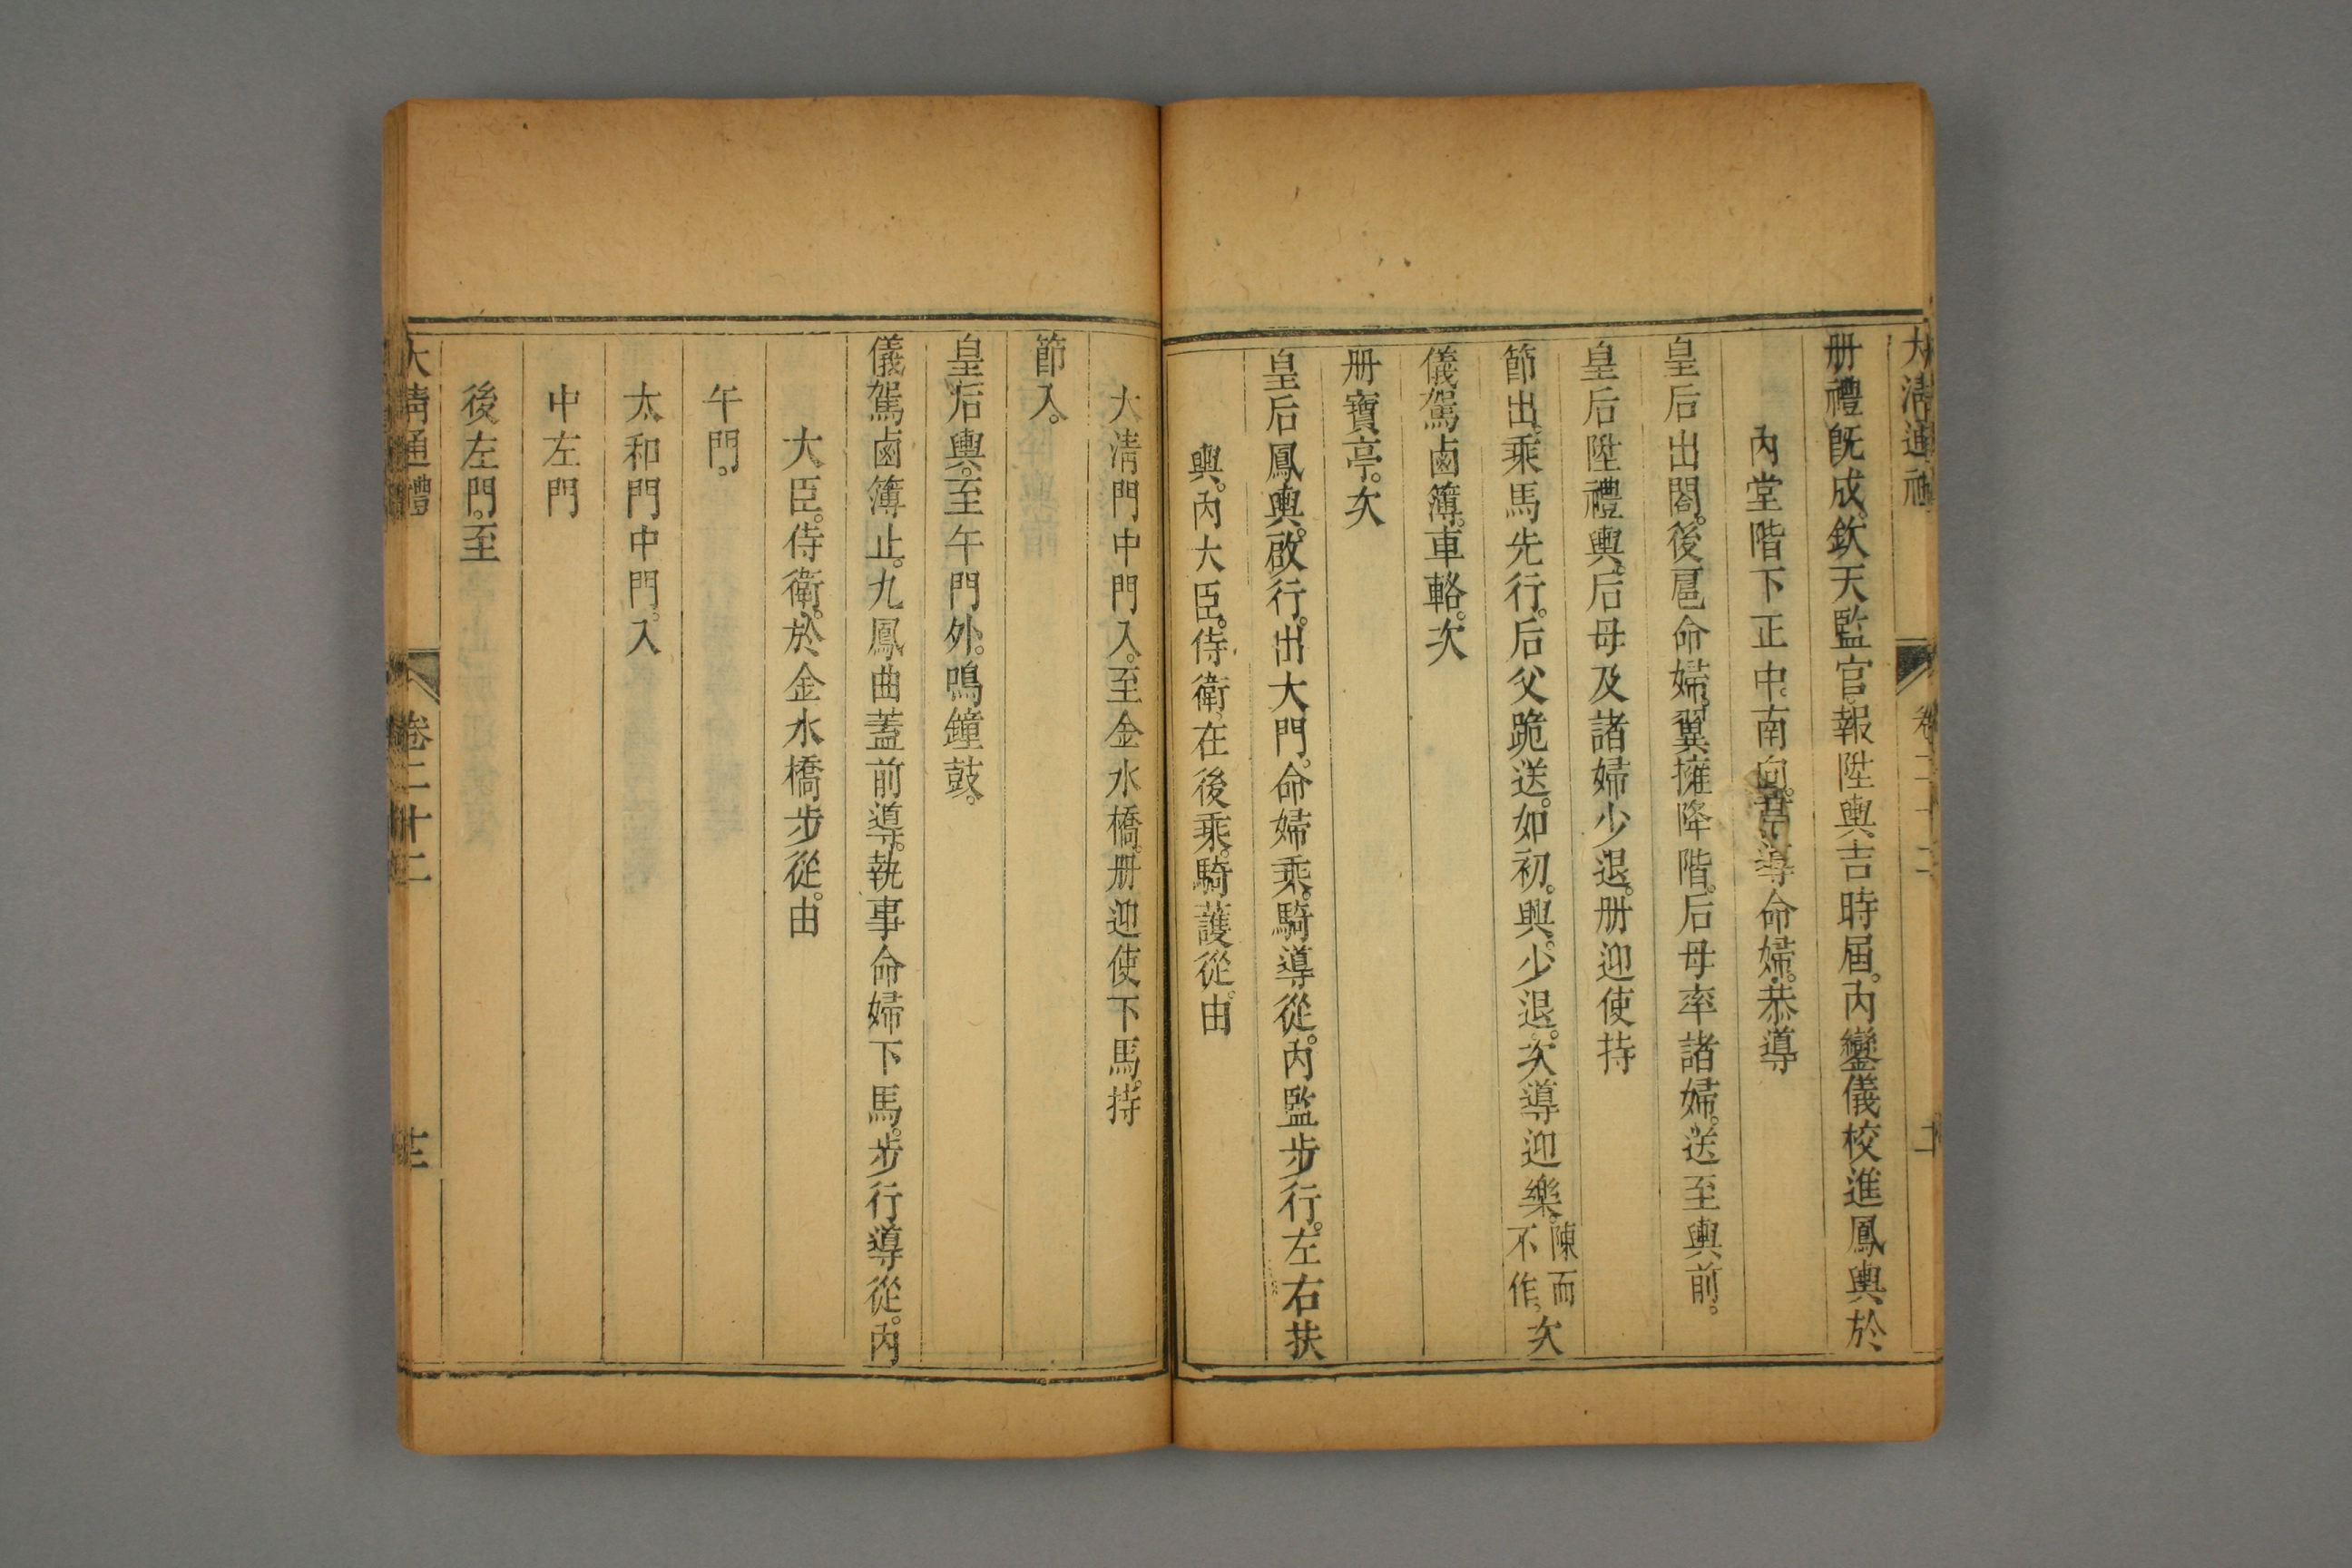 大清通禮 卷二十二
册禮旣成。欽天監官。報陞輿吉時屆。內鑾儀校進鳳輿於
內堂階下正中。南向。導命婦。恭導
皇后出閤。後扈命婦。翼擁降階。后母率諸婦。送至輿前。
皇后陞禮輿。后母及諸婦少退。册迎使持
節出。乘馬先行。后父跪送。如初。興。少退。次導迎樂。陳而不作。次
儀駕鹵簿。車輅。次
册寶亭。次
皇后鳳輿。啟行。出大門。命婦乘騎導從。內監步行。左右扶
輿。內大臣。侍衛。在後乘騎護從。由
大淸門中門入。至金水橋。册迎使下馬。持
節入。
皇后輿。至午門外。鳴鐘鼓。
儀駕鹵簿止。九鳳曲蓋前導。執事命婦下馬。步行導從。內
大臣。侍衛。於金水橋步從。由
午門。
太和門中門。入
中左門
後左門。至
大清通禮 卷二十二